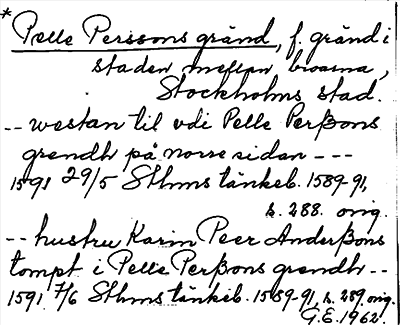 * Pelle Perssons gränd, f. gränd i
staden mellan broarna,
Stockholms stad.
-- westan til vdi Pelle Perßons
grendh på norre sidan ---
1591 29/5 Sthms tänkeb. 1589-91,
s. 288. orig.
-- hustru Karin Peer Anderßons
tompt i Pelle Perßons grendh --
1591 7/6 Sthms tänkeb. 1589-91, s. 289. orig.
G.E. 1962.